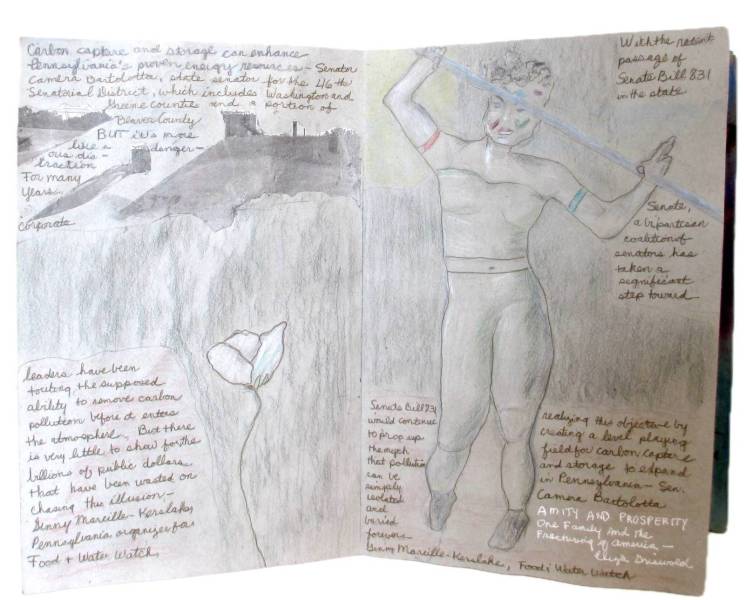 Carbon capture and storage can enhance
Pennsylvania's proven energy resources - Senator
Camera Bartolotta, state senator for the 46th
Senatorial District, which includes Washington and
Greene Counties and a portion of
Beaver County
BUT it's more
like a danger-
ous dis-
traction
For many
Years
corporate
leaders have been
touting the supposed
ability to remove carbon
pollution before it enters
the atmosphere. But there
is very little to show for the
billions of public dollars
that have been wasted on
chasing this illusion -
Ginny Marcille-Kerslake,
Pennsylvania organizer for
Food + Water Watch
With the recent
passage of
Senate Bill 831
in the state
Senate,
a bipartisan
coalition of
senators has
taken a
significant
step toward
realizing this objective by
creating a level playing
field for carbon capture
and storage to expand
in Pennsylvania - Sen.
Camera Bartolotta
Senate Bill 831
would continue
to prop up
the myth
that pollution
can be
simply
isolated
and
buried
forever -
Ginny Marcille-Kerslake, Food & Water Watch
AMITY AND PROSPERITY
One Family and the
Fracturing of America -
Eliza Griswold